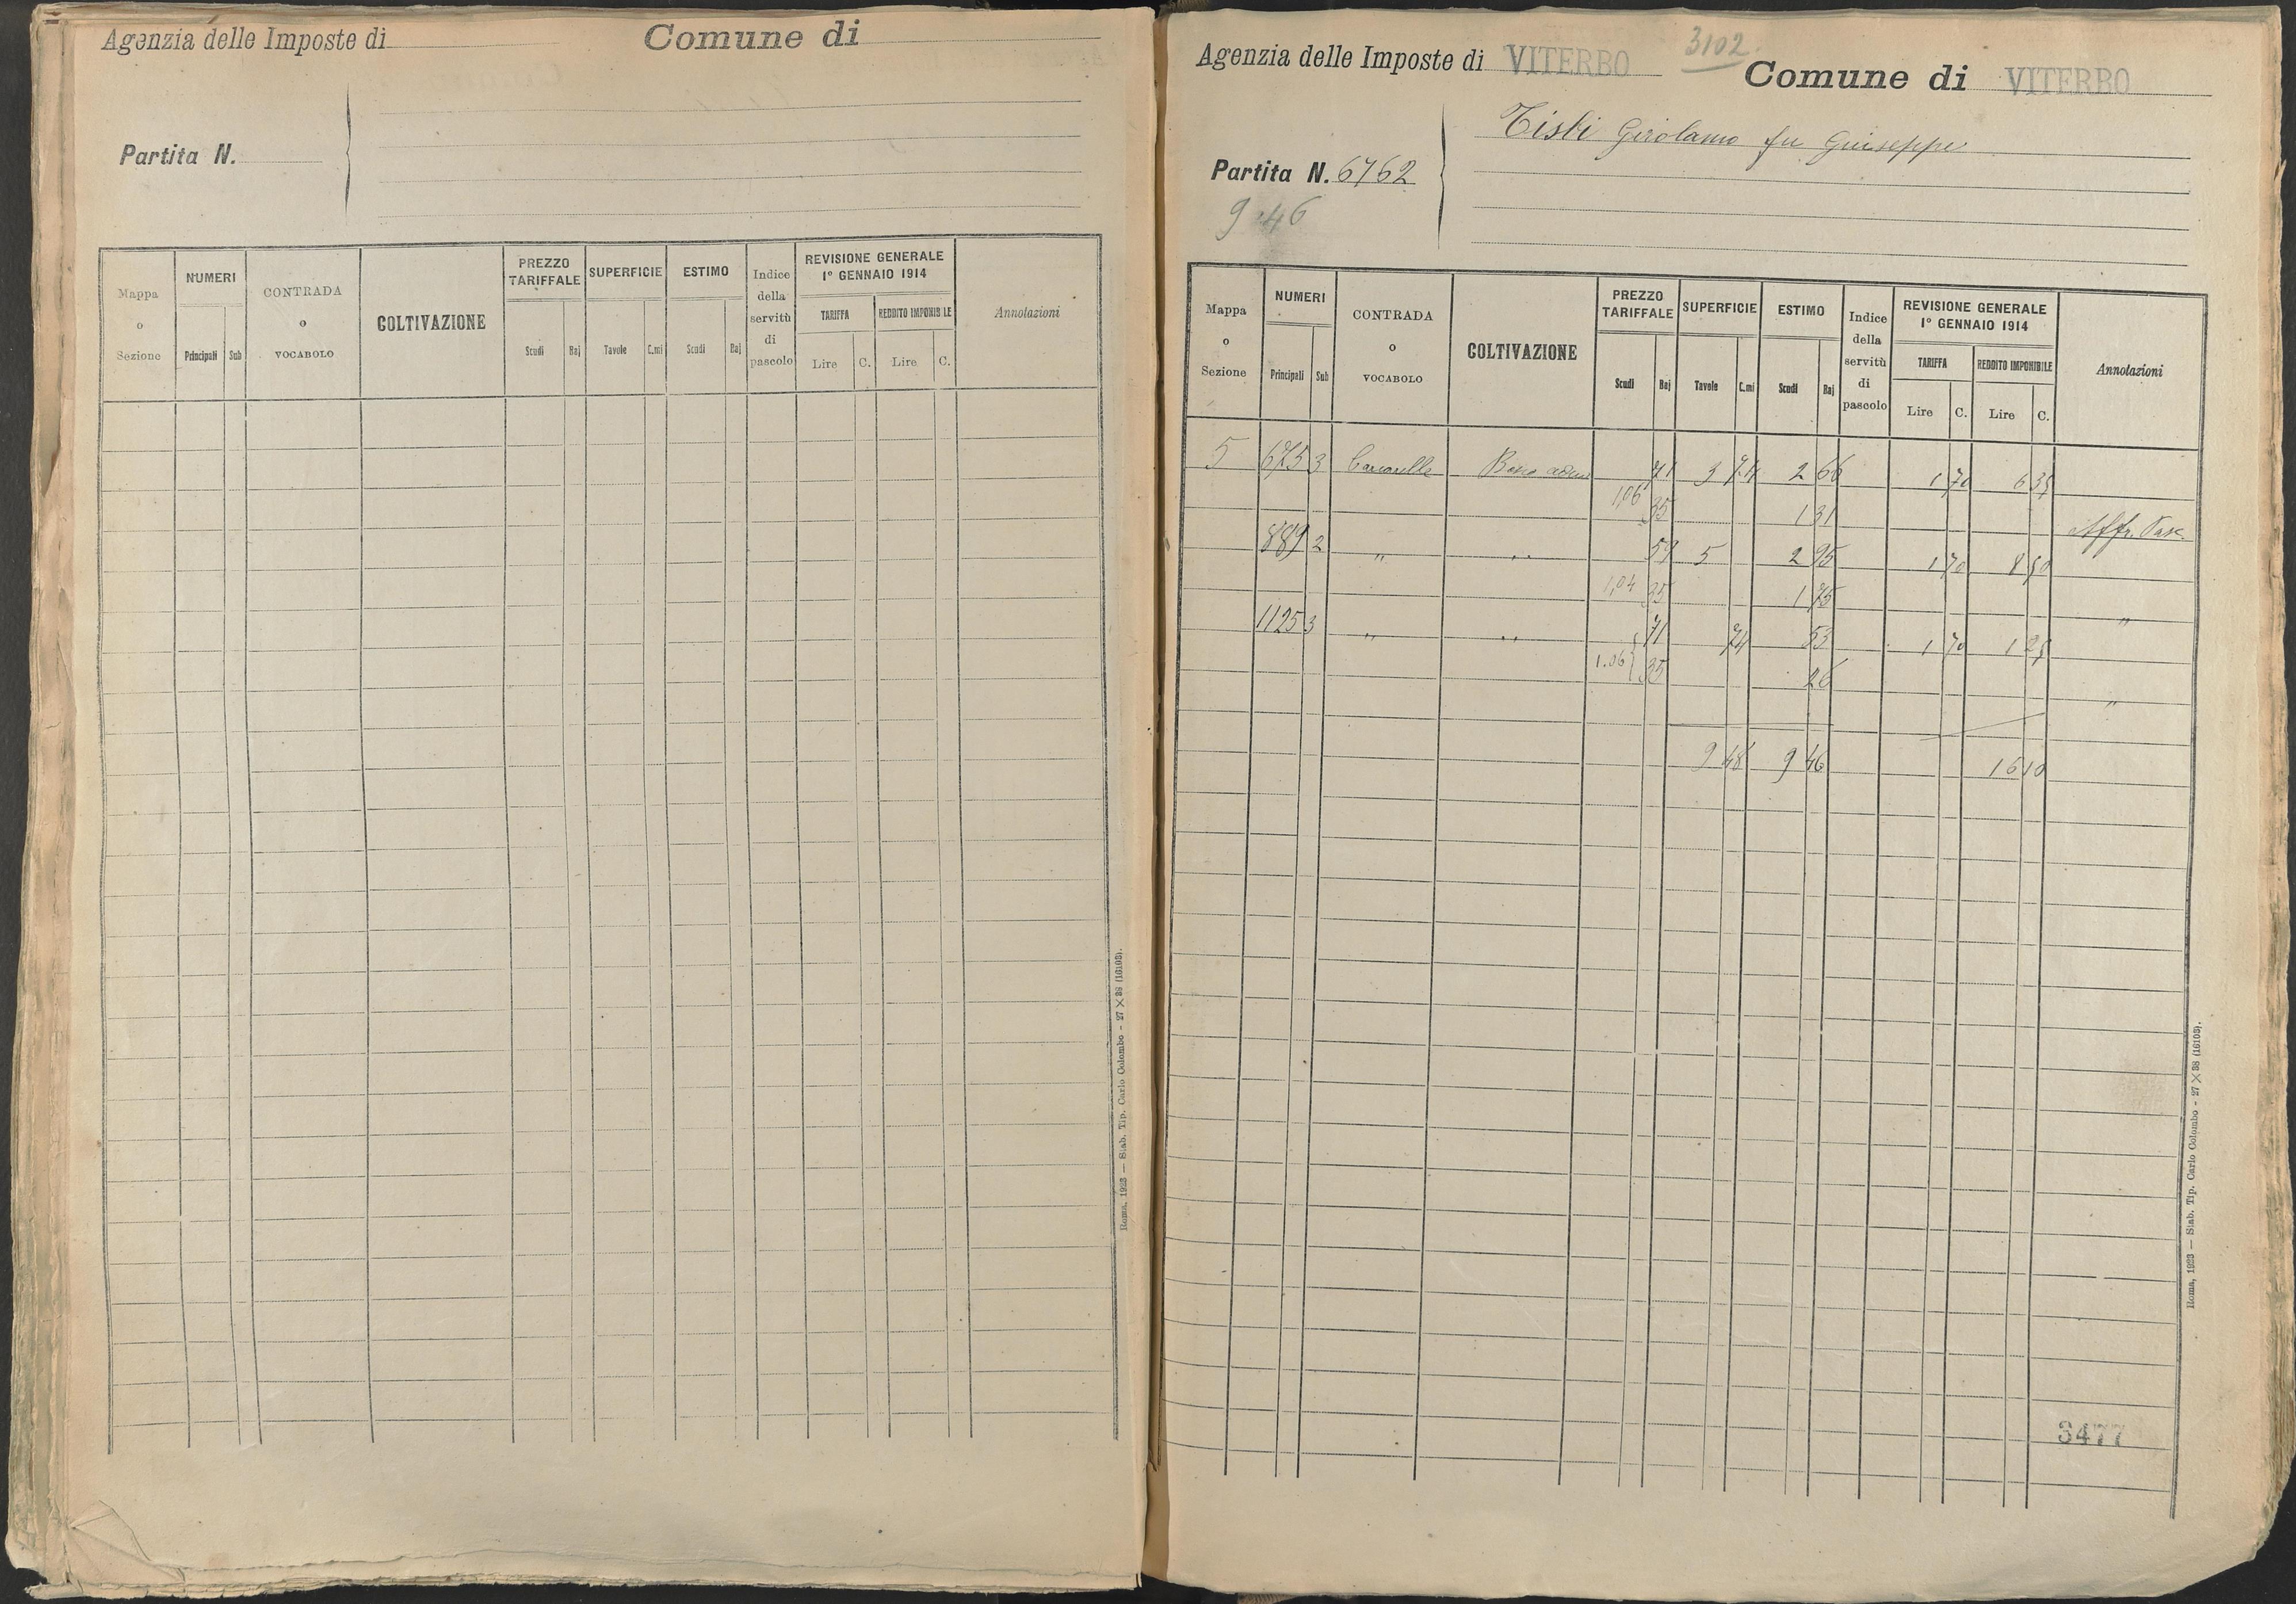 Agenzia delle Imposte di
Comune di
Partita N.
Mappa o Sezione
NUMERI
Principali Sub
CONTRADA o VOCABOLO
COLTIVAZIONE
PREZZO TARIFFALE
Scudi Baj
SUPERFICIE
Tavole C.mi
ESTIMO
Scudi Baj
Indice della servitù di pascolo
REVISIONE GENERALE
1° GENNAIO 1914
TARIFFA
Lire C.
REDDITO IMPONIBILE
Lire C.
Annotazioni
Roma, 1923 — Stab. Tip. Carlo Colombo - 27 X 38 (16103).
3102
Agenzia delle Imposte di VITERBO
Comune di VITERBO
Tisbi Girolamo fu Giuseppe
Partita N. 6762
9.46
Mappa o Sezione
NUMERI
Principali Sub
CONTRADA o VOCABOLO
COLTIVAZIONE
PREZZO TARIFFALE
Scudi Baj
SUPERFICIE
Tavole C.mi
ESTIMO
Scudi Baj
Indice della servitù di pascolo
REVISIONE GENERALE
1° GENNAIO 1914
TARIFFA
Lire C.
REDDITO IMPONIBILE
Lire C.
Annotazioni
5 675 3 71 3 74 2 66 1 70 6 35
1,06 35 1 31 Affr. Pasc.
889 2 " " 59 5 2 95 1 70 8 50
1,04 35 1 75 "
1125 3 " " 71 74 53 1 70 1 25
1.06 35 26 "
9 48 9 46 16 10
3477
Roma, 1923 — Stab. Tip. Carlo Colombo - 27 X 38 (16103).